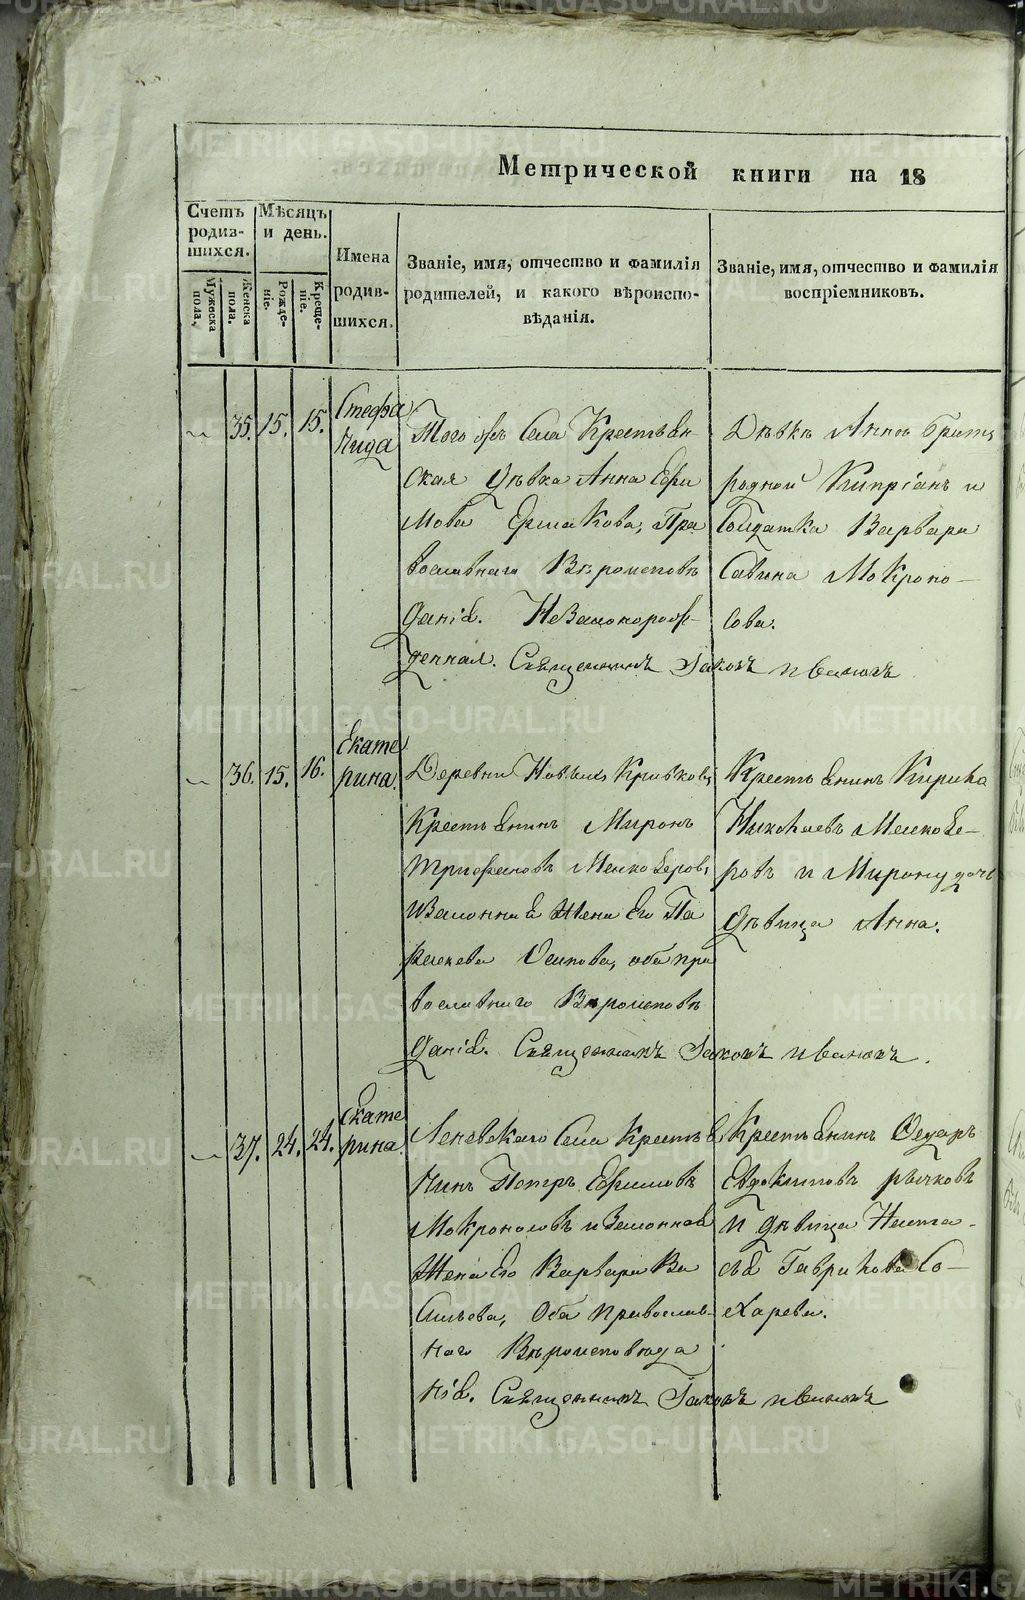 Метрической книги на 18
Счетъ родив-шихся.
Мужеска пола,
Женска пола.
Мѣсяцъ и день.
Рожде-ніе.
Креще-ніе.
Имена родив-шихся.
Званіе, имя, отчество и фамилія
родителей, и какого вѣроиспо-
вѣданія.
Званіе, имя, отчество и фамилія
воспріемниковъ.
35. 15. 15.
Стефа
нида
Того жъ Села Крестьян-
ская Дѣвка Анна Ефи
мова Ермакова, Пра
вославнаго Вѣроисповѣ
данія. Незаконорож-
денная. Священникъ Іаковъ Ивановъ
Дѣвкѣ Аннѣ Братъ
родной Кипріанъ и
Солдатка Варвара
Савина Мокроно-
сова.
36. 15. 16.
Екате
рина.
Деревни Новыхъ Кривковъ,
Крестьянинъ Миронъ
Трифоновъ
И Законная Жена Его Па
раскева Осипова, оба пра
вославнаго Вѣроисповѣ
данія. Священникъ Іаковъ Ивановъ.
Крестьянинъ Кирила
Николаевъ
ровъ и Мирону дочь
дѣвица Анна.
37. 24. 24.
Екате
рина.
Леневскаго Села Крестья
нинъ Петръ Ефимовъ
Мокроносовъ и Законная
Жена Его Варвара Ва
сильева, Оба Православ-
наго Вѣроисповѣда
нія. Священникъ Іаковъ Ивановъ
Крестьянинъ Ѳедоръ
Евдокимовъ рычковъ
И дѣвица Наста-
сья Гаврилова Со-
харева.
METRIKI.GASO-URAL.RU